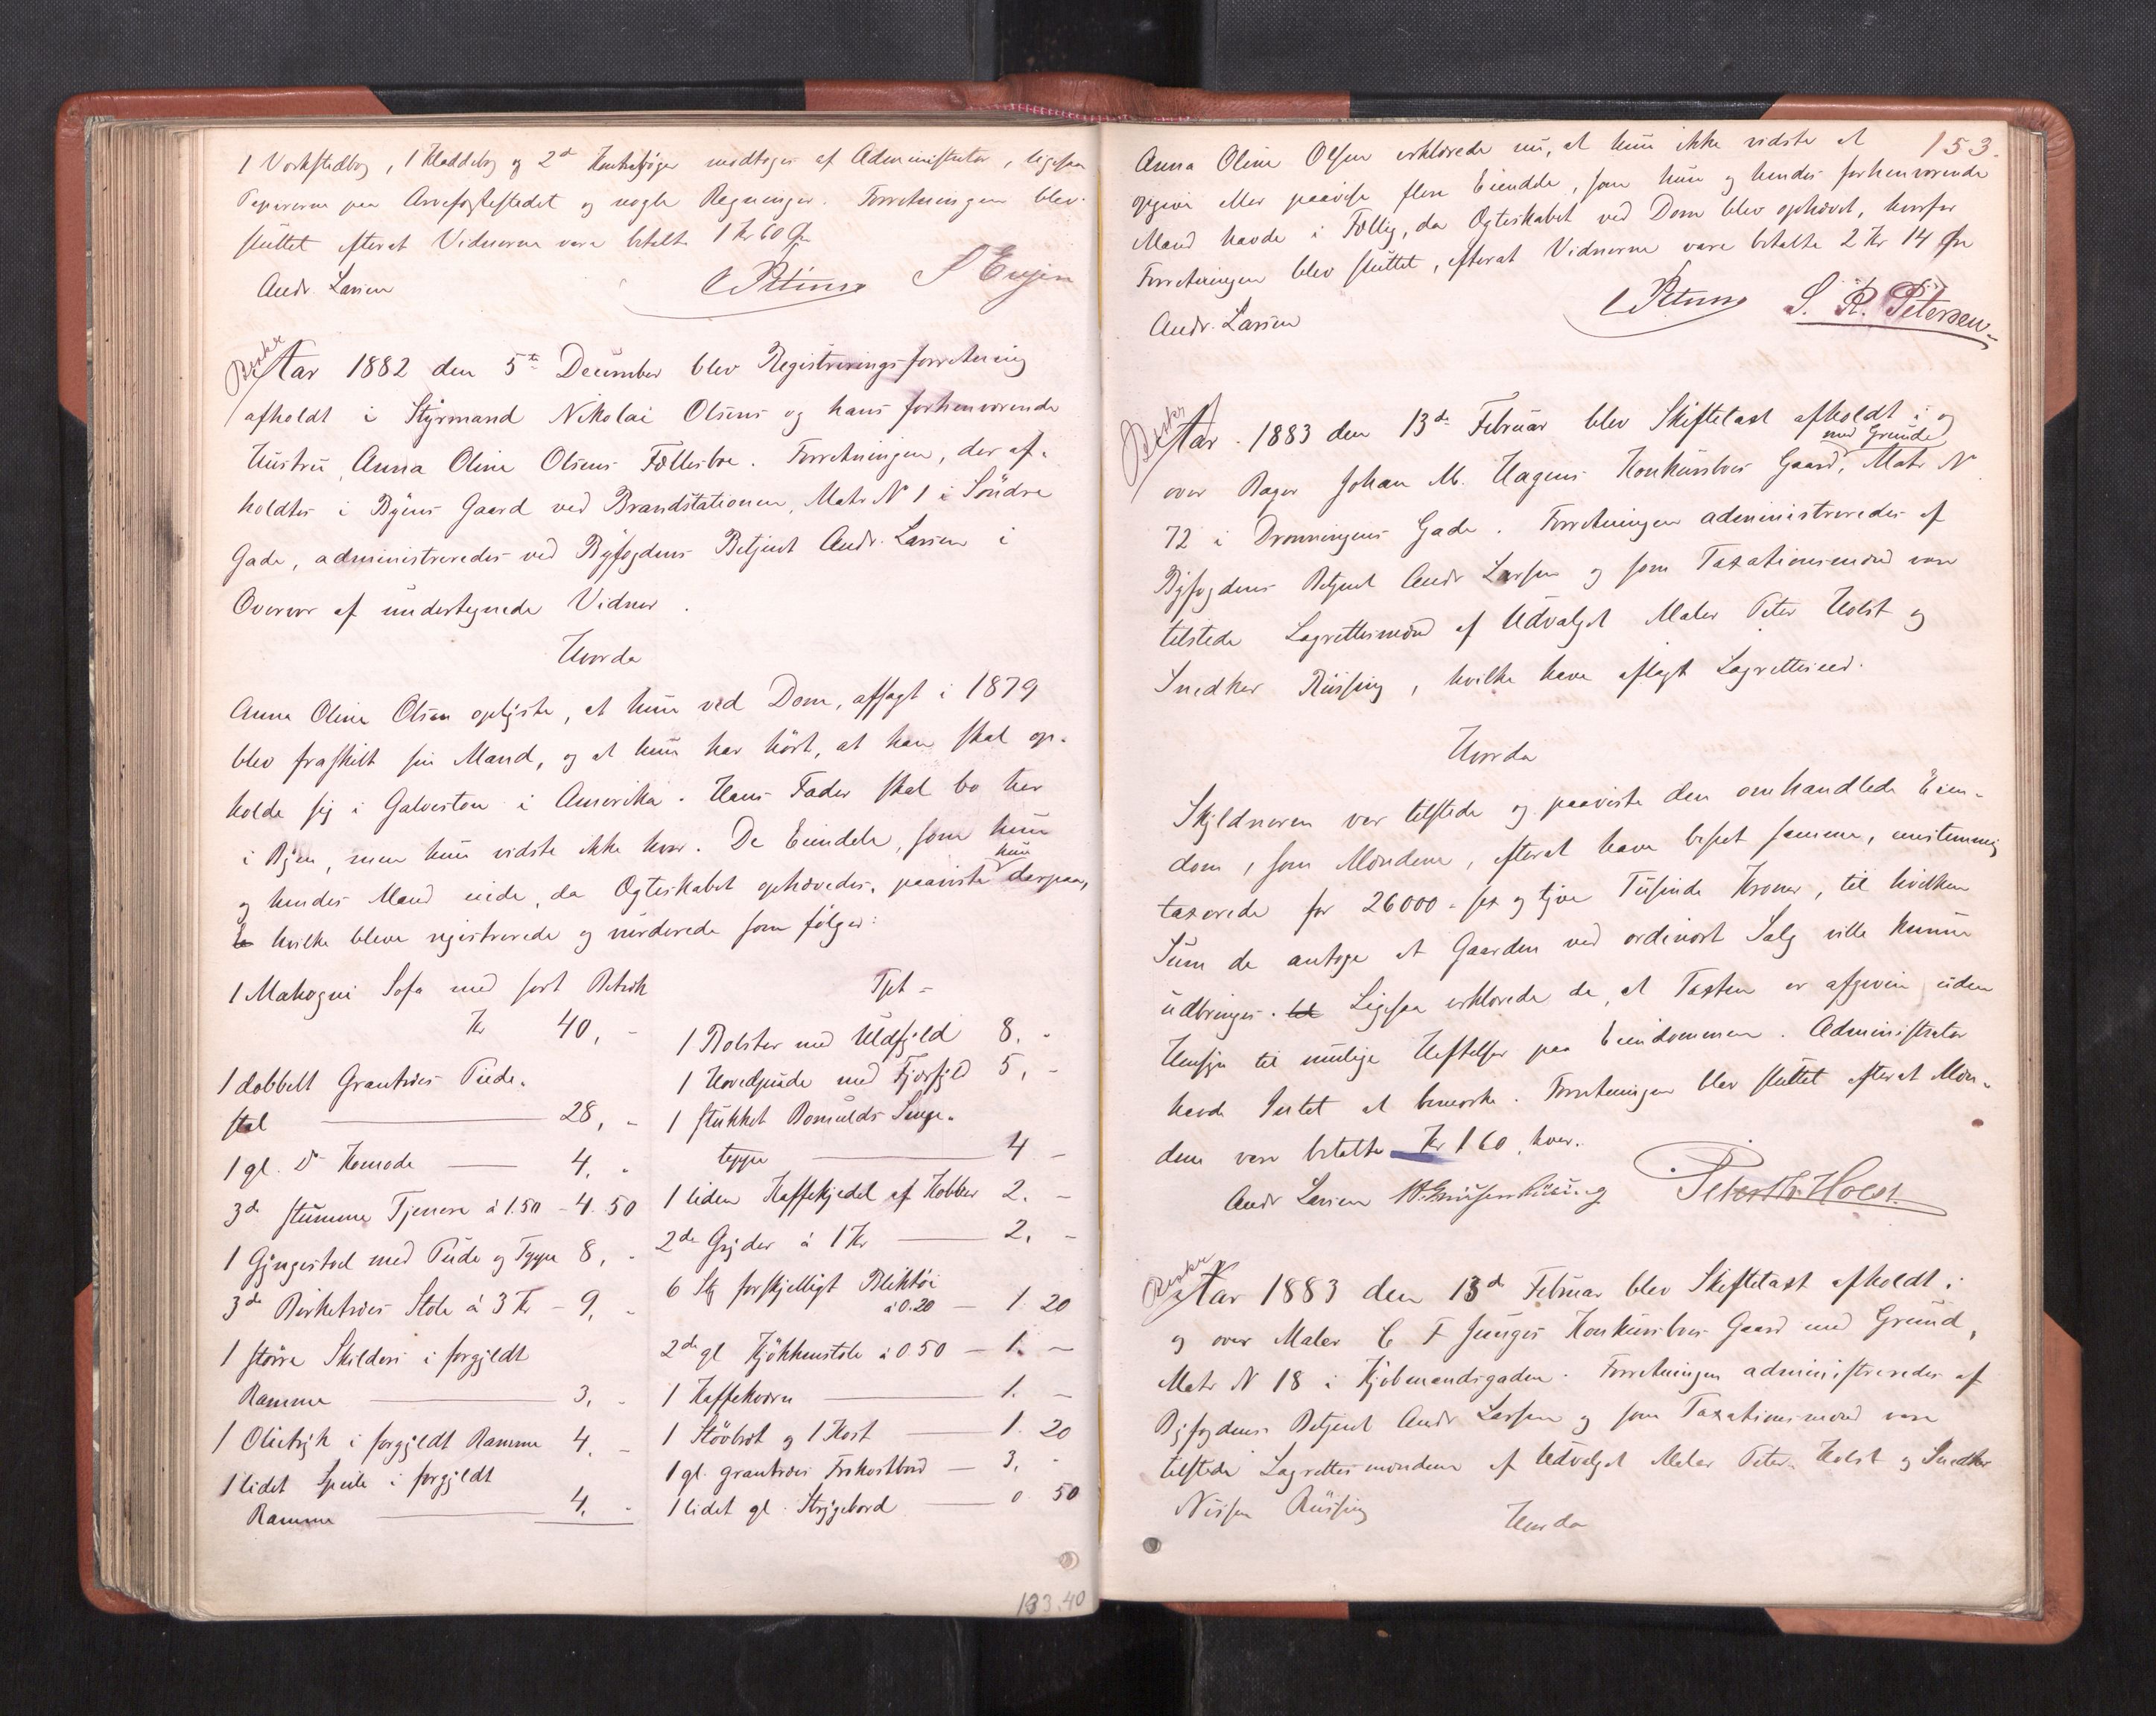 1 Værkstedbog, 1 Kladdebog og 2de Kontrabøger modtoges af Administrator, ligesaa
Papirerne paa Arvefæstestedet og nogle Regninger. Forretningen blev
sluttet efterat Vidnerne vare betalte 1 Kr 60 Øre
Andr. Larsen
Beskr
Aar 1882 den 5te December blev Registreringsforretning
afholdt i Styrmand Nikolai Olsens og hans forhenværende
Hustru, Anna Oline Olsens Fællesbo. Forretningen, der af-
holdtes i Byens Gaard ved Brandstationen, Matr N 1 i Söndre
Gade, administreredes ved Byfogdens Betjent Andr. Larsen i
Overvær af undertegnede Vidner.
Hvorda
Anna Oline Olsen oplyste, at hun ved Dom, afsagt i 1879
blev fraskilt sin Mand, og at hun har hört, at han skal op-
holde sig i Galveston i Amerika. Hans Fader skal bo her
i Byen, men hun vidste ikke hvor. De Eiendele, som hun
og hendes Mand eiede, da Ægteskabet ophævedes, paaviste hun derpaa,
hvilke bleve registrerede og vurderede som følger:
1 Mahogni Sofa med sort Betræk
Kr 40, -
1 dobbelt Grantræes Piede-
stal 28, -
1 gl. Do Komode 4, -
3de stumme Tjenere à 1.50 - 4. 50
1 Gyngestol med Pude og Tæppe 8, -
3de Birketræes Stole à 3 Kr - 9, -
1 större Skilderi i forgyldt
Ramme 3, -
1 Olietryk i forgyldt Ramme 4, -
1 lidet Speile i forgyldt
Ramme 4, -
Tpt -
1 Bolster med Uldfyld 8. -
1 Hovedpude med Fjærfyld 5, -
1 stukket Bomulds Senge-
tæppe 4 -
1 liden Kaffekjedel af Kobber 2. -
2de Gryder à 1 Kr 2. -
6 Stk forskjelligt Bliktöi
à 0.20 - 1. 20
2de gl Kjökkenstole à 0 50 - 1. -
1 Kaffekværn 1. -
1 Stövbræt og 1 Kost 1. 20
1 gl. grantræes Frokostbord - 3, -
1 lidet gl. Strygebord 0 50
133.40
153.
Anna Oline Olsen erklærede nu, at hun ikke vidste at
opgive eller paavise flere Eiendele, som hun og hendes forhenværende
Mand havde i Fællig, da Ægteskabet ved Dom blev ophævet, hvorfor
Forretningen blev sluttet, efterat Vidnerne vare betalte 2 Kr 14 Øre
Andr. Larsen
S. R. Petersen
Beskr
Aar 1883 den 13de Februar blev Skiftetaxt afholdt i og
over Bager Johan M. Hagens Konkursboes Gaard, med Grund Matr N
72 i Dronningens Gade. Forretningen administreredes af
Byfogdens Betjent Andr Larsen og som Taxationsmænd vare
tilstede Lagrettesmænd af Udvalget Maler Peter Holst og
Snedker Rüssing, hvilke have aflagt Lagretteseed.
Hvorda
Skyldneren var tilstede og paaviste den omhandlede Eien-
dom, som Mændene, efterat have beseet samme, enstemmig
taxerede for 26000 - sex og tyve Tusinde Kroner, til hvilken
Sum de antoge at Gaarden ved ordinært Salg ville kunne
udbringes. Ligesaa erklærede de, at Taxten er afgiven uden
Hensyn til mulige Heftelser paa Eiendommen. Administrator
havde Intet at bemærke. Forretningen blev sluttet efterat Mæn-
dene vare betalte Kr 1 60, hver.
Andr Larsen Nissen Rüsing Peter Th. Holst
Beskr
Aar 1883 den 13de Februar blev Skiftetaxt afholdt i
og over Maler C F Junges Konkursboes Gaard med Grund,
Matr N 18 i Kjöbmandsgaden. Forretningen administreredes af
Byfogdens Betjent Andr Larsen og som Taxationsmænd vare
tilstede Lagrettesmændene af Udvalget Maler Peter Holst og Snedker
Nissen Rüssing
Hvorda